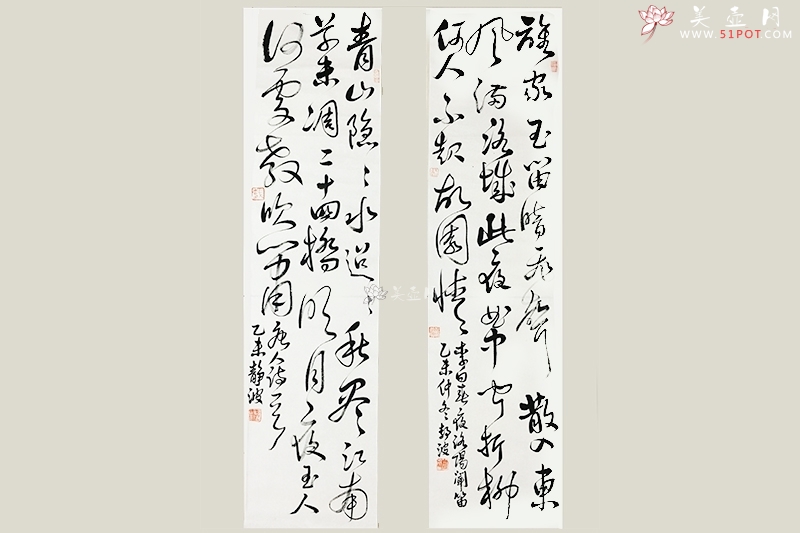 美壶网
WWW.51POT.COM
誰家玉笛暗飛聲散入東
風滿洛城此夜曲中聞折柳
何人不起故園情
李白春夜洛陽聞笛
乙未仲冬靜波
青山隱々水迢々秋盡江南
草未凋二十四橋明月夜玉人
何處教吹簫
唐人詩一首
乙未靜波
美壶网